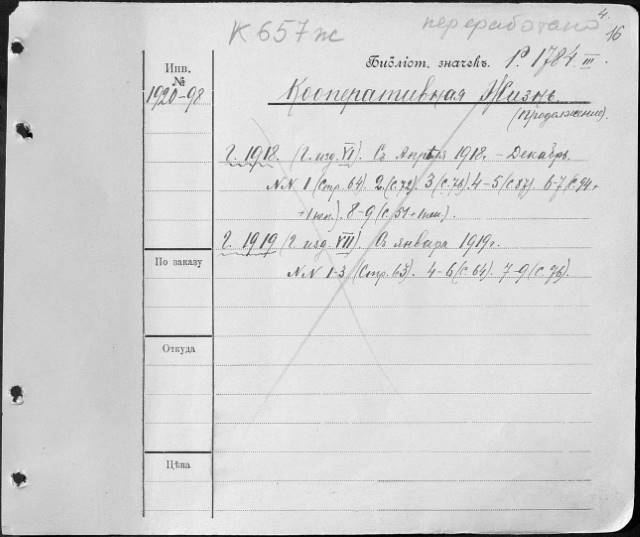 К 657ж переработано 4. 16
Инв. № Библіот. значекъ. Р. 1784 III.
1920-98 Кооперативная Жизнь
(продолжение).
Г. 1918. (Г. изд. VI). Съ Апрѣля 1918. – Декабрь.
NN 1 (Стр. 64). 2 (С. 72). 3 (С. 76). 4-5 (С. 87). 6-7 (С. 94 +
+ 1 нен.). 8-9 (С. 51 + 1 нен.).
Г. 1919 (Г. изд. VII). Съ января 1919 г.
По заказу NN 1-3 (Стр. 63). 4-6 (С. 64). 7-9 (С. 76).
Откуда
Цѣна